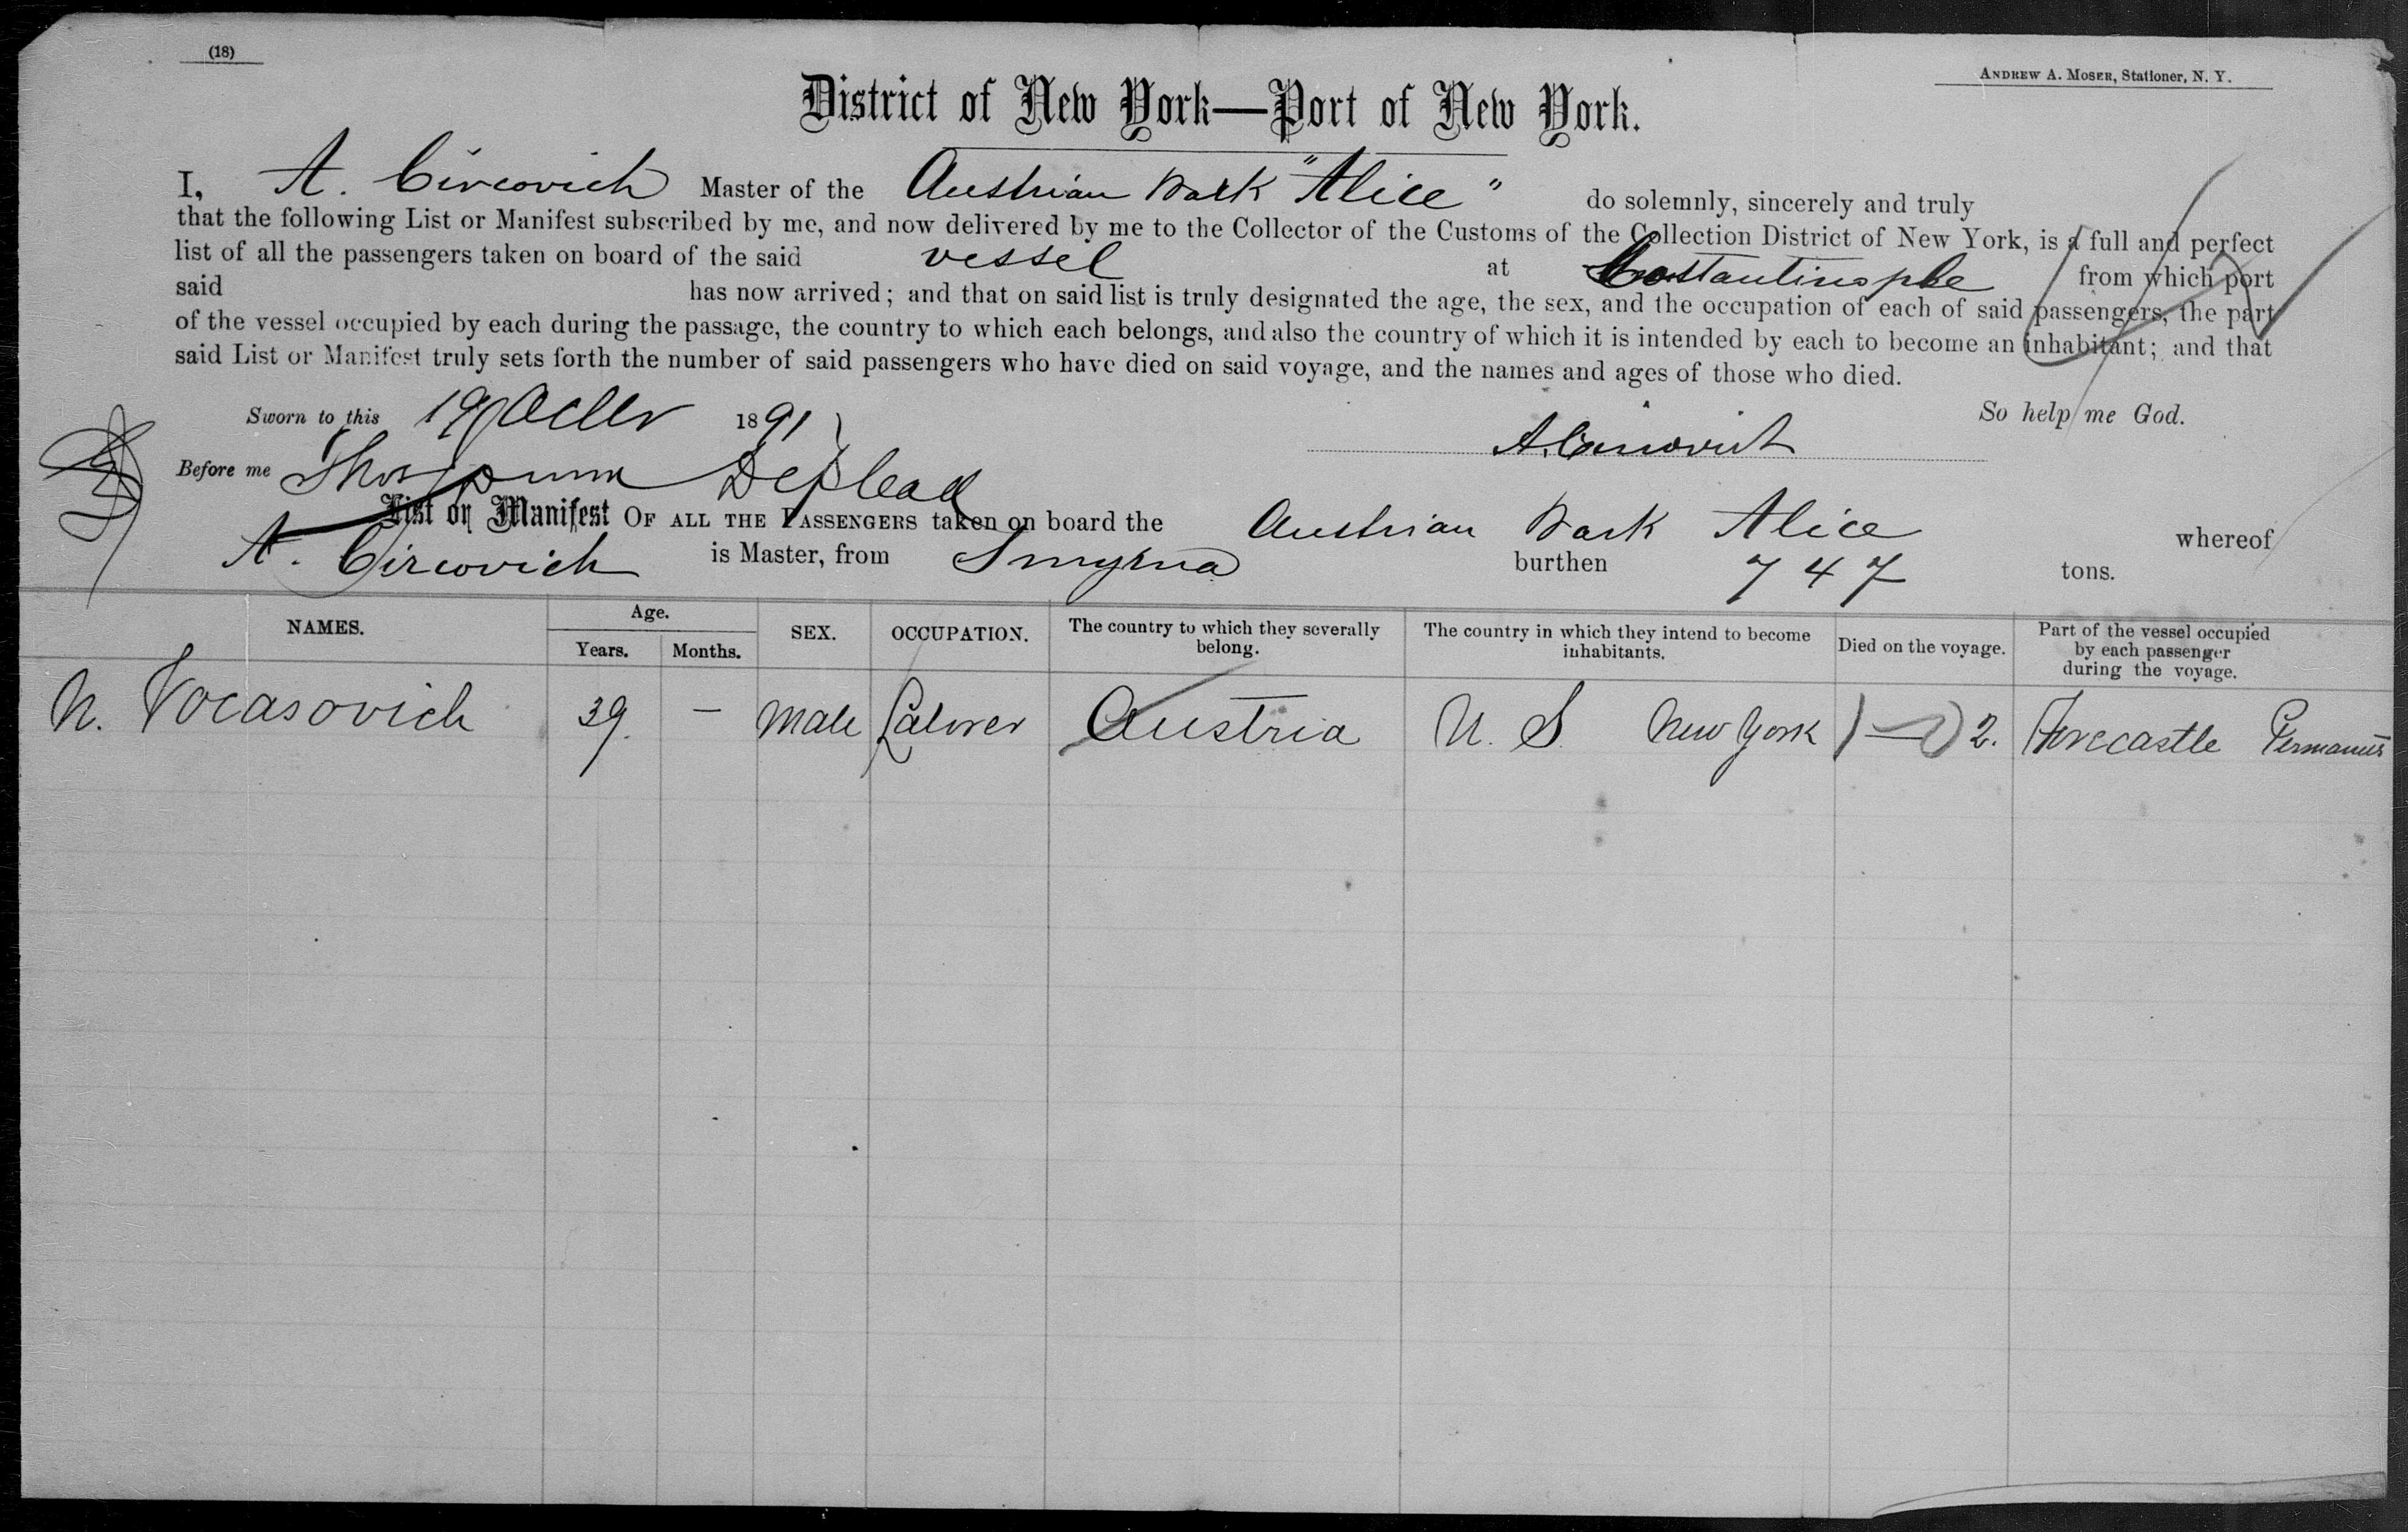 (18)
ANDREW A. MOSER, Stationer, N. Y.
District of New York—Port of New York.
I, A. Circovich Master of the Austrian Bark "Alice" do solemnly, sincerely and truly
that the following List or Manifest subscribed by me, and now delivered by me to the Collector of the Customs of the Collection District of New York, is a full and perfect
list of all the passengers taken on board of the said vessel at Costantinople from which port
said has now arrived; and that on said list is truly designated the age, the sex, and the occupation of each of said passengers, the part
of the vessel occupied by each during the passage, the country to which each belongs, and also the country of which it is intended by each to become an inhabitant; and that
said List or Manifest truly sets forth the number of said passengers who have died on said voyage, and the names and ages of those who died.
Sworn to this 19 1891 So help me God.
A. Circovich
Before me Thos Dep
List or Manifest OF ALL THE PASSENGERS taken on board the Austrian Bark Alice whereof
A. Circovich is Master, from Smyrna burthen 747 tons.
NAMES. Age. Years. Months. SEX. OCCUPATION. The country to which they severally belong. The country in which they intend to become inhabitants. Died on the voyage. Part of the vessel occupied by each passenger during the voyage.
N. Vocasovich 39. — Male Laborer Austria U. S. New York 2. Forecastle